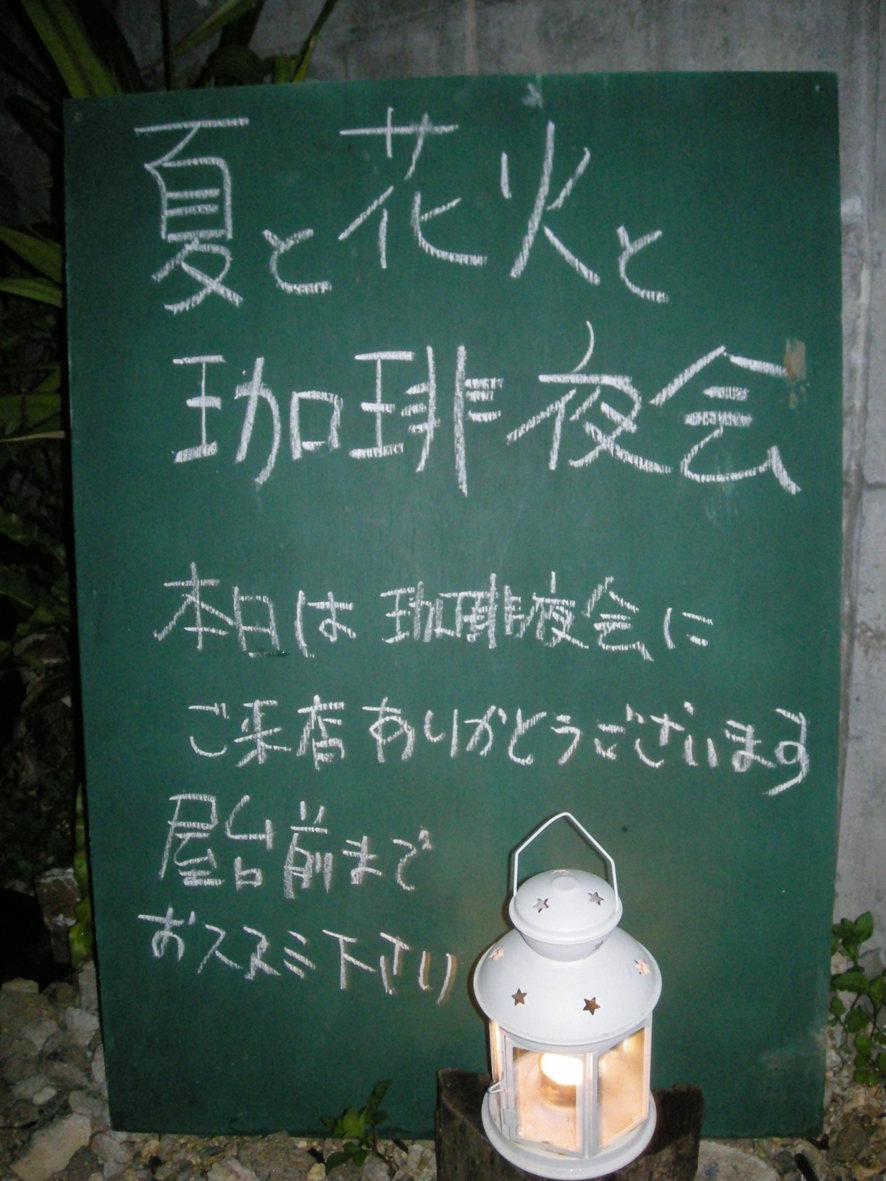 夏と花火と
珈琲夜会
本日は珈琲夜会に
ご来店ありがとうございます
屋台前まで
おススミ下さい